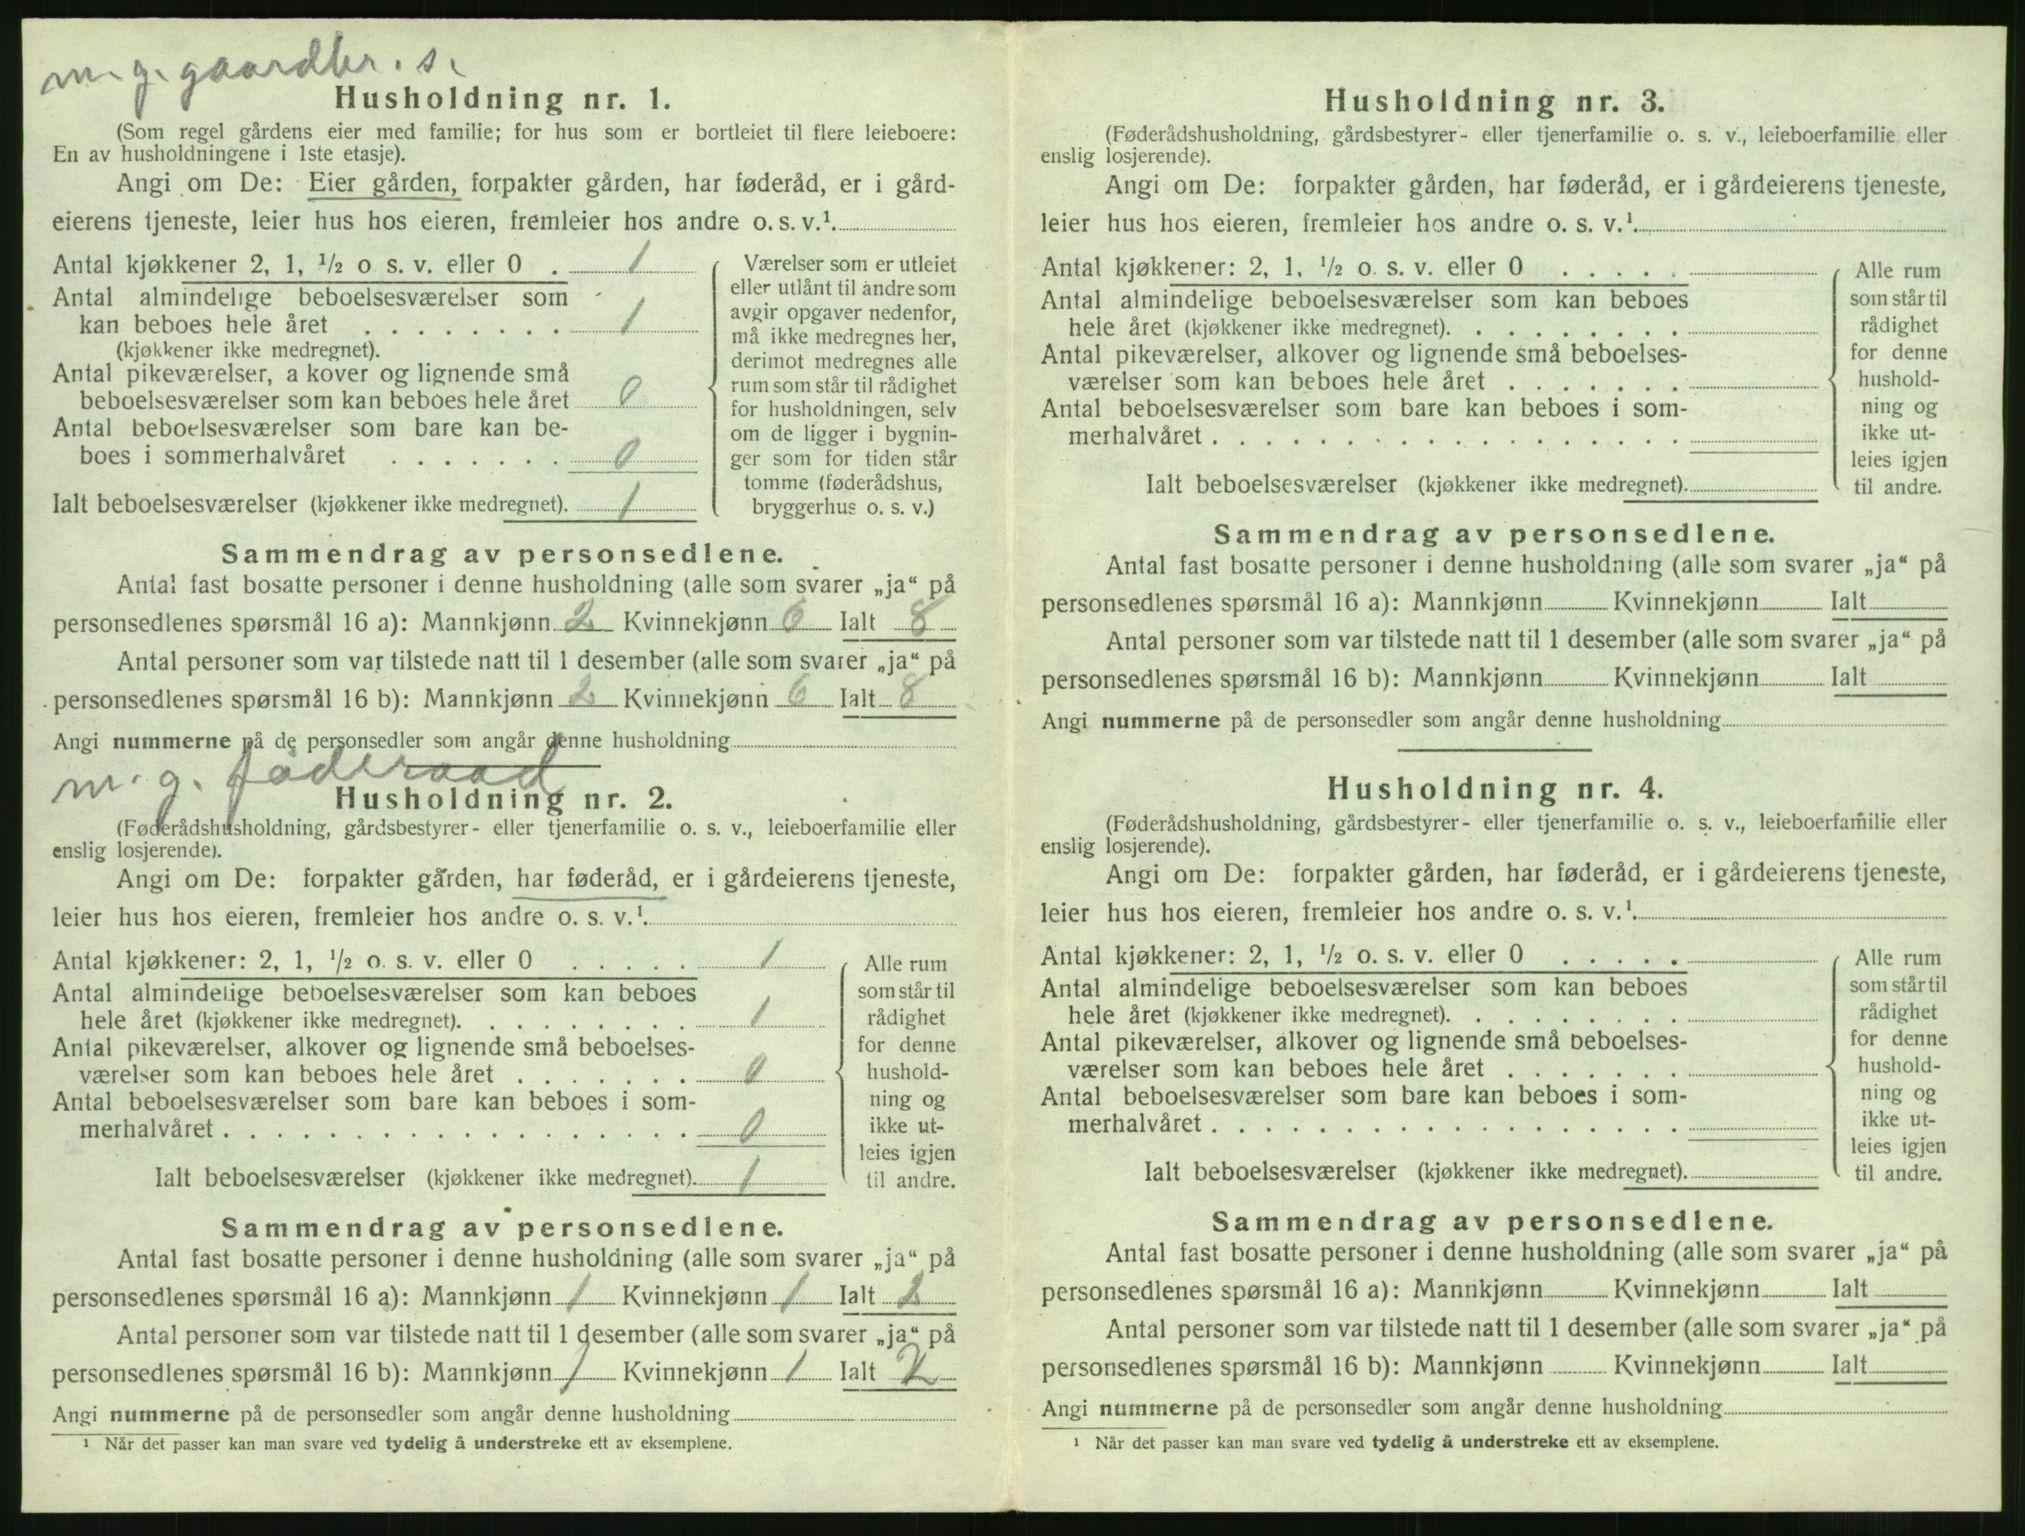 m. g. gaardbr. s.
Husholdning nr. 1.
(Som regel gårdens eier med familie; for hus som er bortleiet til flere leieboere:
En av husholdningene i 1ste etasje).
Angi om De: Eier gården, forpakter gården, har føderåd, er i gård-
eierens tjeneste, leier hus hos eieren, fremleier hos andre o. s. v.¹.
Antal kjøkkener 2, 1, ½ o s. v. eller 0 . 1
Antal almindelige beboelsesværelser som
kan beboes hele året . . . . . . . . 1
(kjøkkener ikke medregnet).
Antal pikeværelser, a kover og lignende små
beboelsesværelser som kan beboes hele året 0
Antal beboelsesværelser som bare kan be-
boes i sommerhalvåret . . . . . . . 0
Ialt beboelsesværelser (kjøkkener ikke medregnet). 1
Værelser som er utleiet
eller utlånt til andre som
avgir opgaver nedenfor,
må ikke medregnes her,
derimot medregnes alle
rum som står til rådighet
for husholdningen, selv
om de ligger i bygnin-
ger som for tiden står
tomme (føderådshus,
bryggerhus o. s. v.)
Sammendrag av personsedlene.
Antal fast bosatte personer i denne husholdning (alle som svarer „ja“ på
personsedlenes spørsmål 16 a): Mannkjønn 2 Kvinnekjønn 6 Ialt 8
Antal personer som var tilstede natt til 1 desember (alle som svarer „ja“ på
personsedlenes spørsmål 16 b): Mannkjønn 2 Kvinnekjønn 6 Ialt 8
Angi nummerne på de personsedler som angår denne husholdning
m. g. føderaad
Husholdning nr. 2.
(Føderådshusholdning, gårdsbestyrer- eller tjenerfamilie o. s. v., leieboerfamilie eller
enslig losjerende).
Angi om De: forpakter gården, har føderåd, er i gårdeierens tjeneste,
leier hus hos eieren, fremleier hos andre o. s. v.¹.
Antal kjøkkener: 2, 1, ½ o. s. v. eller 0 . . . . . 1
Antal almindelige beboelsesværelser som kan beboes
hele året (kjøkkener ikke medregnet). . . . . . . . . 1
Antal pikeværelser, alkover og lignende små beboelses-
værelser som kan beboes hele året . . . . . . . 0
Antal beboelsesværelser som bare kan beboes i som-
merhalvåret . . . . . . . . . . . . . . . . . . 0
Ialt beboelsesværelser (kjøkkener ikke medregnet). 1
Alle rum
som står til
rådighet
for denne
hushold-
ning og
ikke ut-
leies igjen
til andre.
Sammendrag av personsedlene.
Antal fast bosatte personer i denne husholdning (alle som svarer „ja“ på
personsedlenes spørsmål 16 a): Mannkjønn 1 Kvinnekjønn 1 Ialt 2
Antal personer som var tilstede natt til 1 desember (alle som svarer „ja“ på
personsedlenes spørsmål 16 b): Mannkjønn 1 Kvinnekjønn 1 Ialt 2
Angi nummerne på de personsedler som angår denne husholdning
¹ Når det passer kan man svare ved tydelig å understreke ett av eksemplene.
Husholdning nr. 3.
(Føderådshusholdning, gårdsbestyrer- eller tjenerfamilie o. s. v., leieboerfamilie eller
enslig losjerende).
Angi om De: forpakter gården, har føderåd, er i gårdeierens tjeneste,
leier hus hos eieren, fremleier hos andre o. s. v.¹.
Antal kjøkkener: 2, 1, ½ o. s. v. eller 0 . . . . .
Antal almindelige beboelsesværelser som kan beboes
hele året (kjøkkener ikke medregnet). . . . . . . . .
Antal pikeværelser, alkover og lignende små beboelses-
værelser som kan beboes hele året . . . . . . .
Antal beboelsesværelser som bare kan beboes i som-
merhalvåret . . . . . . . . . . . . . . . . . .
Ialt beboelsesværelser (kjøkkener ikke medregnet).
Alle rum
som står til
rådighet
for denne
hushold-
ning og
ikke ut-
leies igjen
til andre.
Sammendrag av personsedlene.
Antal fast bosatte personer i denne husholdning (alle som svarer „ja“ på
personsedlenes spørsmål 16 a): Mannkjønn Kvinnekjønn Ialt
Antal personer som var tilstede natt til 1 desember (alle som svarer „ja“ på
personsedlenes spørsmål 16 b): Mannkjønn Kvinnekjønn Ialt
Angi nummerne på de personsedler som angår denne husholdning
Husholdning nr. 4.
(Føderådshusholdning, gårdsbestyrer- eller tjenerfamilie o. s. v., leieboerfamilie eller
enslig losjerende).
Angi om De: forpakter gården, har føderåd, er i gårdeierens tjeneste,
leier hus hos eieren, fremleier hos andre o. s. v.¹.
Antal kjøkkener: 2, 1, ½ o. s. v. eller 0 . . . . .
Antal almindelige beboelsesværelser som kan beboes
hele året (kjøkkener ikke medregnet). . . . . . . . .
Antal pikeværelser, alkover og lignende små beboelses-
værelser som kan beboes hele året . . . . . . .
Antal beboelsesværelser som bare kan beboes i som-
merhalvåret . . . . . . . . . . . . . . . . . .
Ialt beboelsesværelser (kjøkkener ikke medregnet).
Alle rum
som står til
rådighet
for denne
hushold-
ning og
ikke ut-
leies igjen
til andre.
Sammendrag av personsedlene.
Antal fast bosatte personer i denne husholdning (alle som svarer „ja“ på
personsedlenes spørsmål 16 a): Mannkjønn Kvinnekjønn Ialt
Antal personer som var tilstede natt til 1 desember (alle som svarer „ja“ på
personsedlenes spørsmål 16 b): Mannkjønn Kvinnekjønn Ialt
Angi nummerne på de personsedler som angår denne husholdning
¹ Når det passer kan man svare ved tydelig å understreke ett av eksemplene.